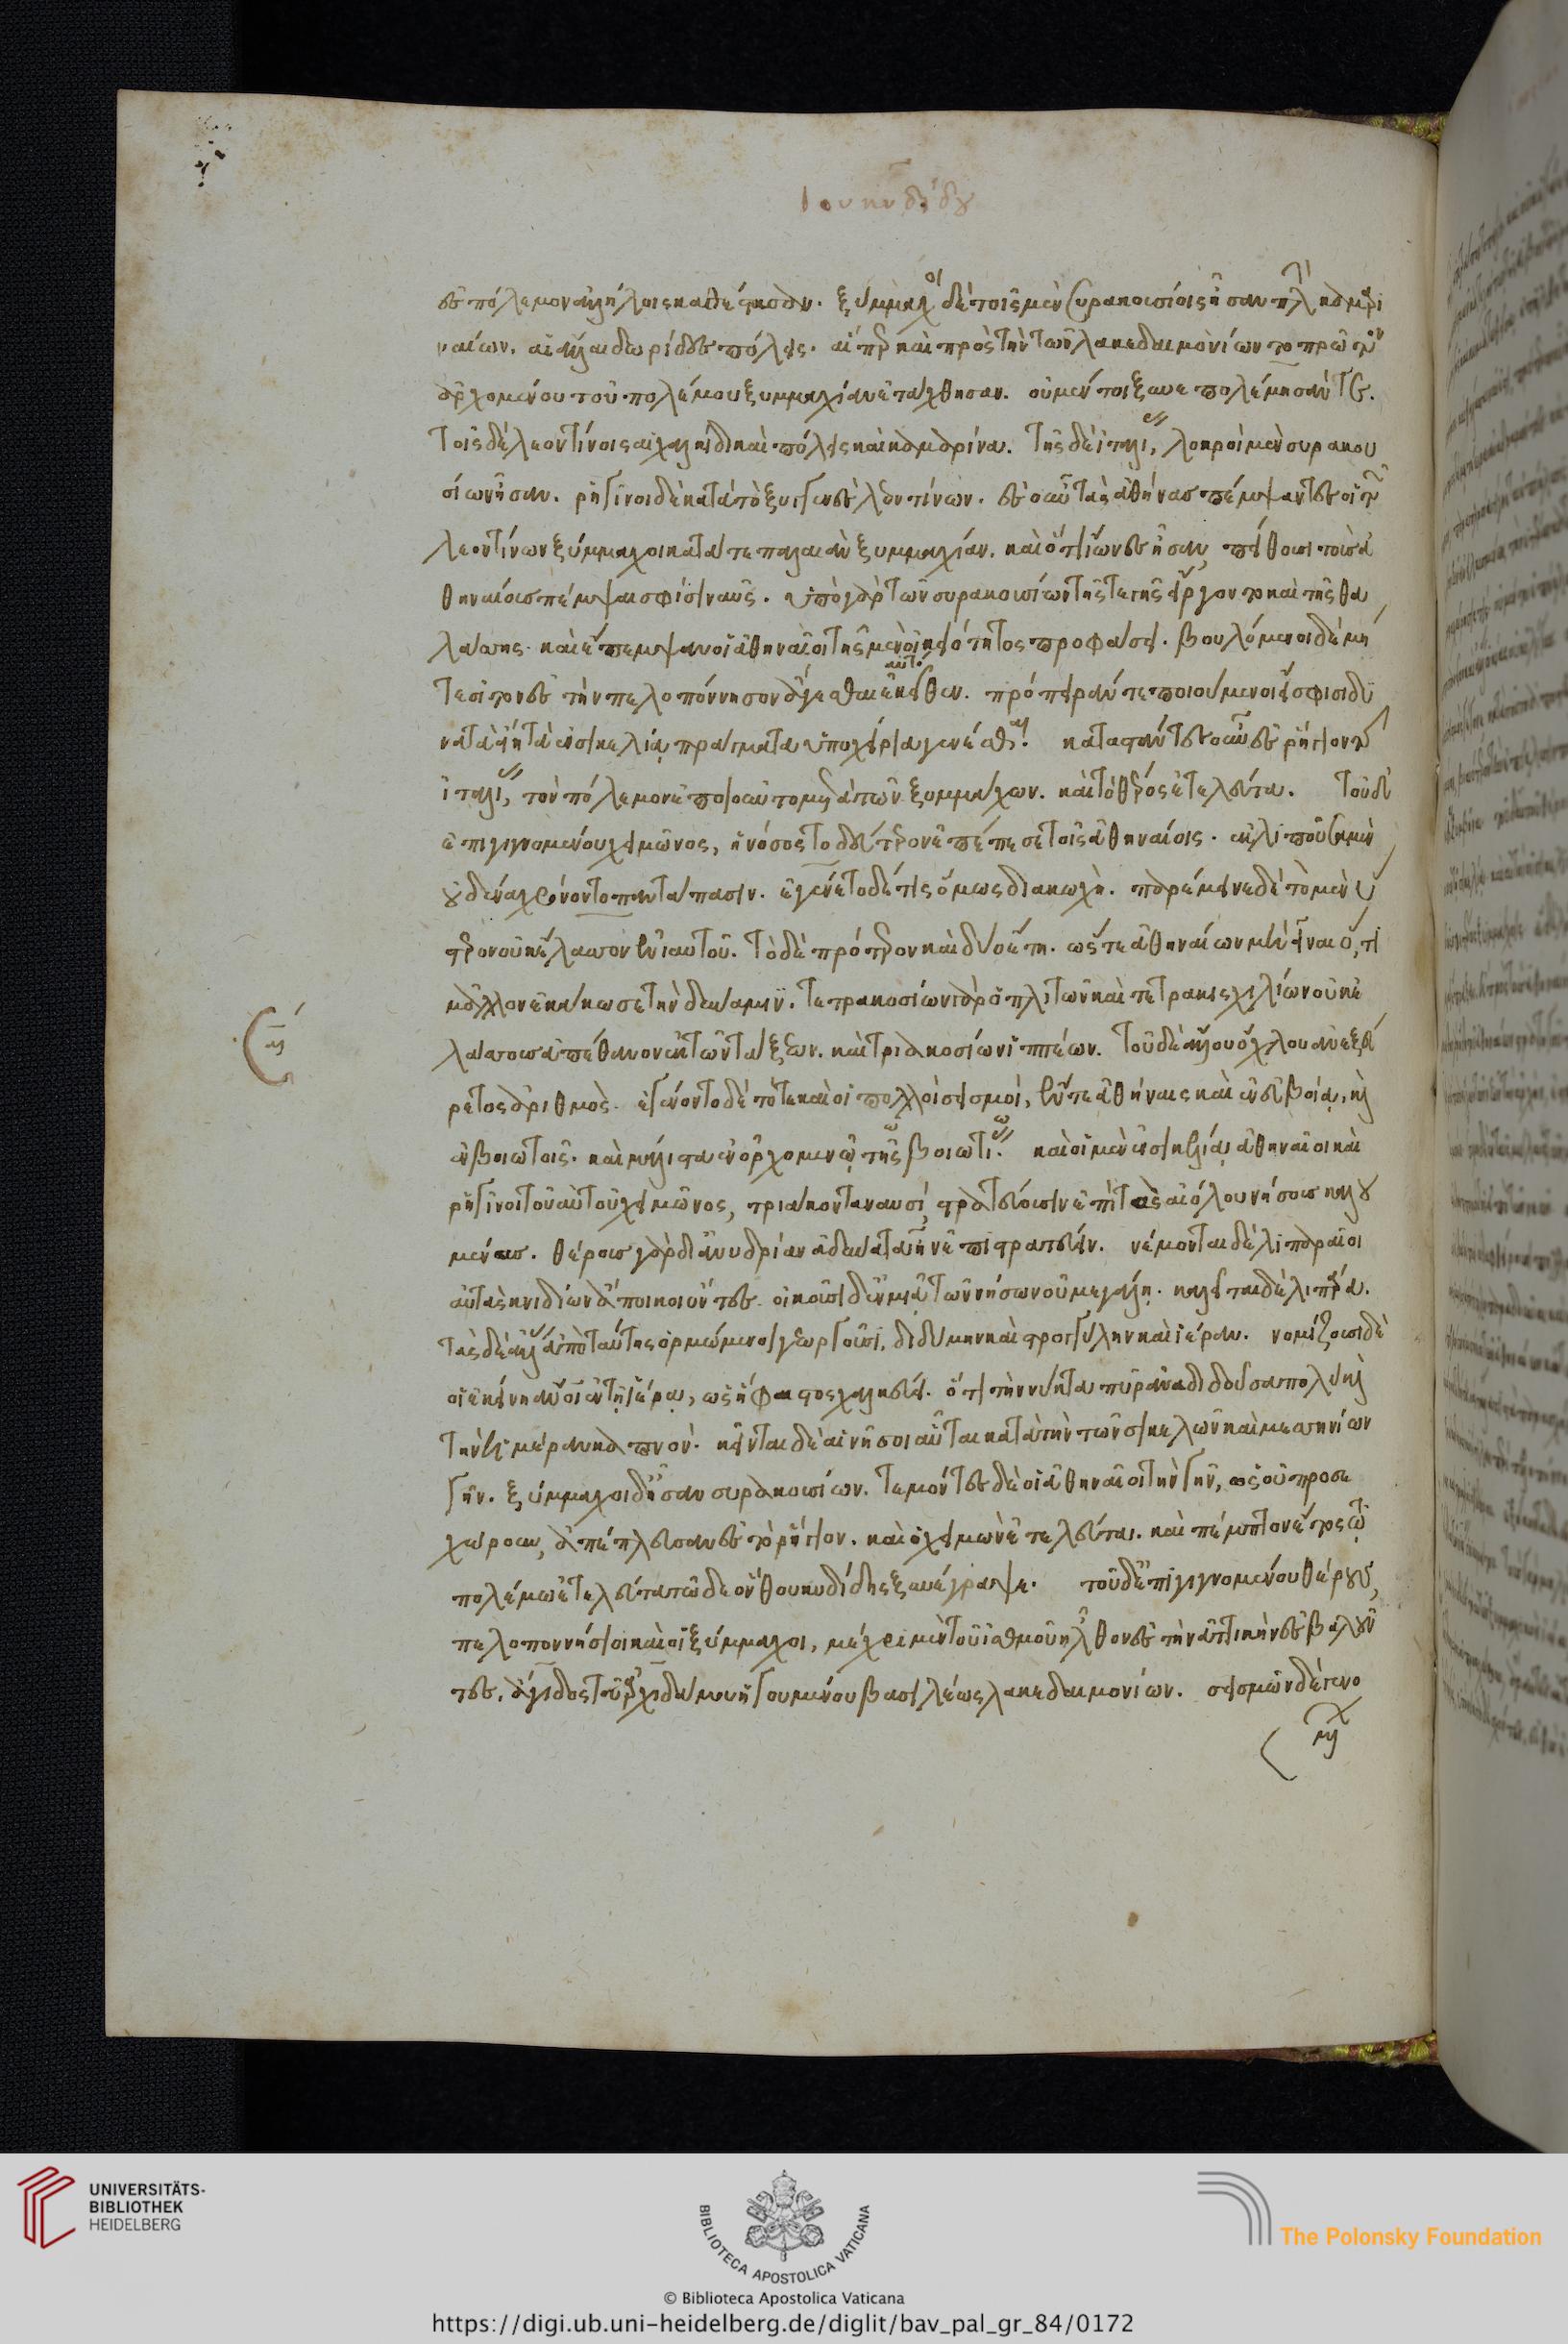 θουκυδίδου
ες πόλεμον ἀλλήλοις καθέστασαν. ξύμμαχοι δὲ τοῖς μὲν συρακουσίοις ἦσαν πλὴν καμαρι
ναίων. αἱ ἄλλαι δωρίδες πόλεις. αἵπερ καὶ πρὸς τὴν τῶν λακεδαιμονίων τοπρῶτον
ἀρχομένου τοῦ πολέμου ξυμμαχίαν ἐτάχθησαν. οὐ μέντοι ξυνεπολέμησάν γε.
τοῖς δὲ λεοντίνοις αἱ χαλκιδικαὶ πόλεις καὶ καμάρινα. τῆς δὲ ἰταλίας, λοκροὶ μὲν συρακου
σίων ἦσαν. ῥηγῖνοι δὲ κατὰ τὸ ξυγγενὲς λεοντίνων. ἐς οὖν τὰς ἀθήνας πέμψαντες οἱ τῶν
λεοντίνων ξύμμαχοι κατά τε παλαιὰν ξυμμαχίαν. καὶ ὅτι ἴωνες ἦσαν, πείθουσι τοὺς ἀ
θηναίους πέμψαι σφίσι ναῦς. ὑπὸ γὰρ τῶν συρακουσίων τῆς τε γῆς εἴργοντο καὶ τῆς θα
λάσσης. καὶ ἔπεμψαν οἱ ἀθηναῖοι τῆς μὲν οἰκειότητος προφάσει. βουλόμενοι δὲ μή
τε σῖτον ἐς τὴν πελοπόννησον ἄγεσθαι αὐτόθεν ἐκεῖθεν. πρόπειράν τε ποιούμενοι εἴ σφισι δυ
νατὰ εἴη τὰ ἐν σικελίᾳ πράγματα ὑποχείρια γενέσθαι. καταστάντες οὖν ἐς ῥήγιον τῆς
ἰταλίας, τὸν πόλεμον ἐποιοῦντο μετὰ τῶν ξυμμάχων. καὶ τὸ θέρος ἐτελεύτα. τοῦ δ'
ἐπιγιγνομένου χειμῶνος, ἡ νόσος τὸ δεύτερον ἐπέπεσε τοῖς ἀθηναίοις. ἐκλιποῦσα μὲν
οὐδένα χρόνον τὸ παντάπασιν. ἐγένετο δέ τις ὅμως διακωχή. παρέμεινε δὲ τὸ μὲν ὕ
στερον οὐκ ἔλασσον ἐνιαυτοῦ. τὸ δὲ πρότερον καὶ δύο ἔτη. ὥστε ἀθηναίων μὴ εἶναι ὅ,τι
μᾶλλον ἐκάκωσε τὴν δύναμιν. τετρακοσίων γὰρ ὁπλιτῶν καὶ τετρακισχιλίων οὐκ ἐ
λάσσους ἀπέθανον ἐκ τῶν τάξεων. καὶ τριακοσίων ἱππέων. τοῦ δὲ ἄλλου ὄχλου ἀνεξεύ
ρετος ἀριθμός. ἐγένοντο δὲ τότε καὶ οἱ πολλοὶ σεισμοί, ἔν τε ἀθήναις καὶ ἐν εὐβοίᾳ, καὶ
ἐν βοιωτοῖς. καὶ μάλιστα ἐν ὀρχομενῷ τῷ βοιωτίῳ. καὶ οἱ μὲν ἐν σικελίᾳ ἀθηναῖοι καὶ
ῥηγῖνοι τοῦ αὐτοῦ χειμῶνος, τριάκοντα ναυσὶ, στρατεύουσιν ἐπὶ τὰς αἰόλου νήσους καλου
μένας. θέρους γὰρ δι' ἀνυδρίαν ἀδύνατα ἦν ἐπιστρατεύειν. νέμονται δὲ λιπαραῖοι
αὐτὰς κνιδίων ἄποικοι ὄντες. οἰκοῦσι δ' ἐν μιᾷ τῶν νήσων οὐ μεγάλῃ. καλεῖται δὲ λιπάρα.
τὰς δὲ ἄλλας ἀπὸ ταύτης ὁρμώμενοι γεωργοῦσι. διδύμην καὶ στρογγύλην καὶ ἱεράν. νομίζουσι δὲ
οἱ ἐκείνῃ ἄνθρωποι ἐν τῇ ἱέρᾳ, ὡς ἥφαιστος χαλκεύει. ὅτι τὴν νύκτα πῦρ ἀναδιδοῦσα πολὺ καὶ
τὴν ἡμέραν καπνόν. κεῖνται δὲ αἱ νῆσοι αὗται κατὰ τὴν τῶν σικελῶν καὶ μεσσηνίων
γῆν. ξύμμαχοι δ' ἦσαν συρακουσίων. τεμόντες δὲ οἱ ἀθηναῖοι τὴν γῆν, ὡς οὐ προσε
χώρουν, ἀπέπλευσαν ἐς τὸ ῥήγιον. καὶ ὁ χειμὼν ἐτελεύτα. καὶ πέμπτον ἔτος τῷ
πολέμῳ ἐτελεύτα τῷδε ὃν θουκυδίδης ξυνέγραψε. τοῦ δ' ἐπιγιγνομένου θέρους,
πελοποννήσιοι καὶ οἱ ξύμμαχοι, μέχρι μὲν τοῦ ἰσθμοῦ ἦλθον ὡς ἐς τὴν ἀττικὴν ἐσβαλοῦν
τες. ἄγιδος τοῦ ἀρχιδάμου ἡγουμένου βασιλέως λακεδαιμονίων. σεισμῶν δὲ γενο
UNIVERSITÄTS-
BIBLIOTHEK
HEIDELBERG
BIBLIOTECA APOSTOLICA VATICANA
The Polonsky Foundation
© Biblioteca Apostolica Vaticana
https://digi.ub.uni-heidelberg.de/diglit/bav_pal_gr_84/0172